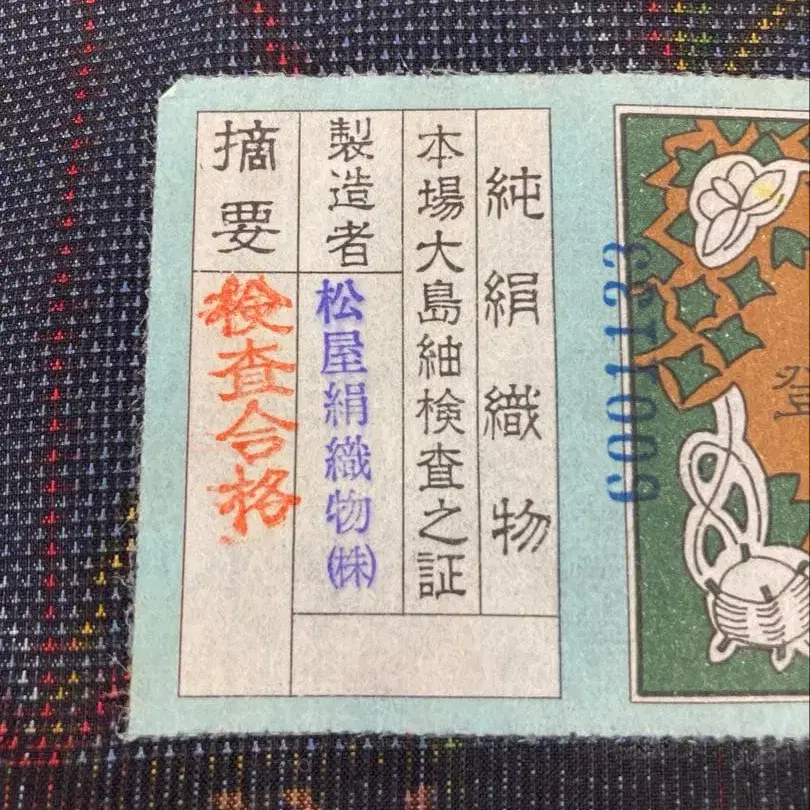 純絹織物
本場大島紬検査之証
製造者
松屋絹織物㈱
摘要
検査合格
6001133
登